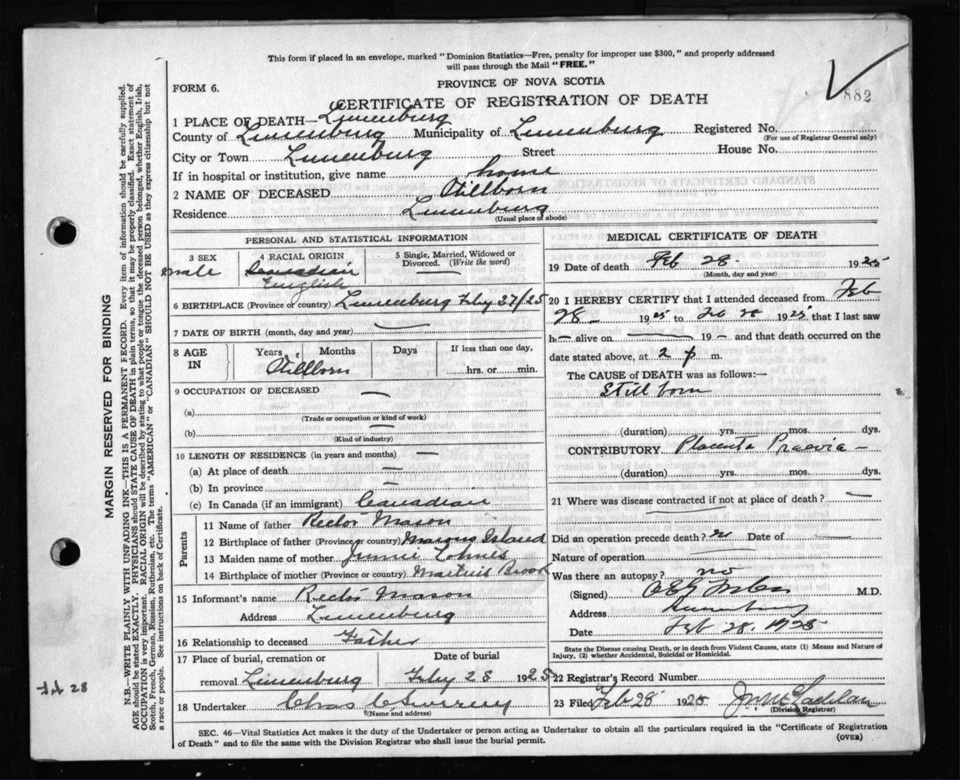 This form if placed in an envelope, marked "Dominion Statistics—Free, penalty for improper use $300," and properly addressed
will pass through the Mail "FREE."
FORM 6.
PROVINCE OF NOVA SCOTIA
882
CERTIFICATE OF REGISTRATION OF DEATH
1 PLACE OF DEATH Lunenburg
County of Lunenburg Municipality of Lunenburg Registered No.
(For use of Registrar General only)
City or Town Lunenburg Street House No.
If in hospital or institution, give name home
2 NAME OF DECEASED Stillborn
Residence Lunenburg
(Usual place of abode)
PERSONAL AND STATISTICAL INFORMATION
3 SEX 4 RACIAL ORIGIN 5 Single, Married, Widowed or
Divorced. (Write the word)
male Canadian
English
6 BIRTHPLACE (Province or country) Lunenburg Feby 27/25
7 DATE OF BIRTH (month, day and year) —
8 AGE IN Years Months Days If less than one day,
Stillborn hrs. or min.
9 OCCUPATION OF DECEASED —
(a)
(Trade or occupation or kind of work)
(b) —
(Kind of industry)
10 LENGTH OF RESIDENCE (in years and months) —
(a) At place of death —
(b) In province —
(c) In Canada (if an immigrant) Canadian
Parents
11 Name of father Rector Mason
12 Birthplace of father (Province or country) Masons Island
13 Maiden name of mother
14 Birthplace of mother (Province or country) Brook
15 Informant's name Rector Mason
Address Lunenburg
16 Relationship to deceased Father
17 Place of burial, cremation or Date of burial
removal Lunenburg Feby 28 1925
18 Undertaker Chas
(Name and address)
MEDICAL CERTIFICATE OF DEATH
19 Date of death Feb 28. 1925
(Month, day and year)
20 I HEREBY CERTIFY that I attended deceased from Feb
28 — 1925 to Feb 28 1925 that I last saw
h — alive on — 19 — and that death occurred on the
date stated above, at 2 p m.
The CAUSE of DEATH was as follows:—
Still born
(duration) yrs. mos. dys.
CONTRIBUTORY Placenta Praevia —
(duration) yrs. mos. dys.
21 Where was disease contracted if not at place of death? —
Did an operation precede death? no Date of
Nature of operation
Was there an autopsy? no
(Signed) M.D.
Address Lunenburg
Date Feb 28. 1925
State the Disease causing Death, or in death from Violent Causes, state (1) Means and Nature of
Injury, (2) whether Accidental, Suicidal or Homicidal.
22 Registrar's Record Number
23 Filed Feb 28 1925
(Division Registrar)
SEC. 46—Vital Statistics Act makes it the duty of the Undertaker or person acting as Undertaker to obtain all the particulars required in the "Certificate of Registration
of Death" and to file the same with the Division Registrar who shall issue the burial permit. (OVER)
MARGIN RESERVED FOR BINDING
N.B.—WRITE PLAINLY WITH UNFADING INK—THIS IS A PERMANENT RECORD. Every item of information should be carefully supplied.
AGE should be stated EXACTLY. PHYSICIANS should STATE CAUSE OF DEATH in plain terms, so that it may be properly classified. Exact statement of
OCCUPATION is very important. RACIAL ORIGIN will be described by stating to what people or tongue the deceased person belonged, whether English, Irish,
Scotch, French, German, Russian, Ruthenian, etc. The terms "AMERICAN" or "CANADIAN" SHOULD NOT BE USED as they express citizenship but not
a race or people. See instructions on back of Certificate.
Feb 28